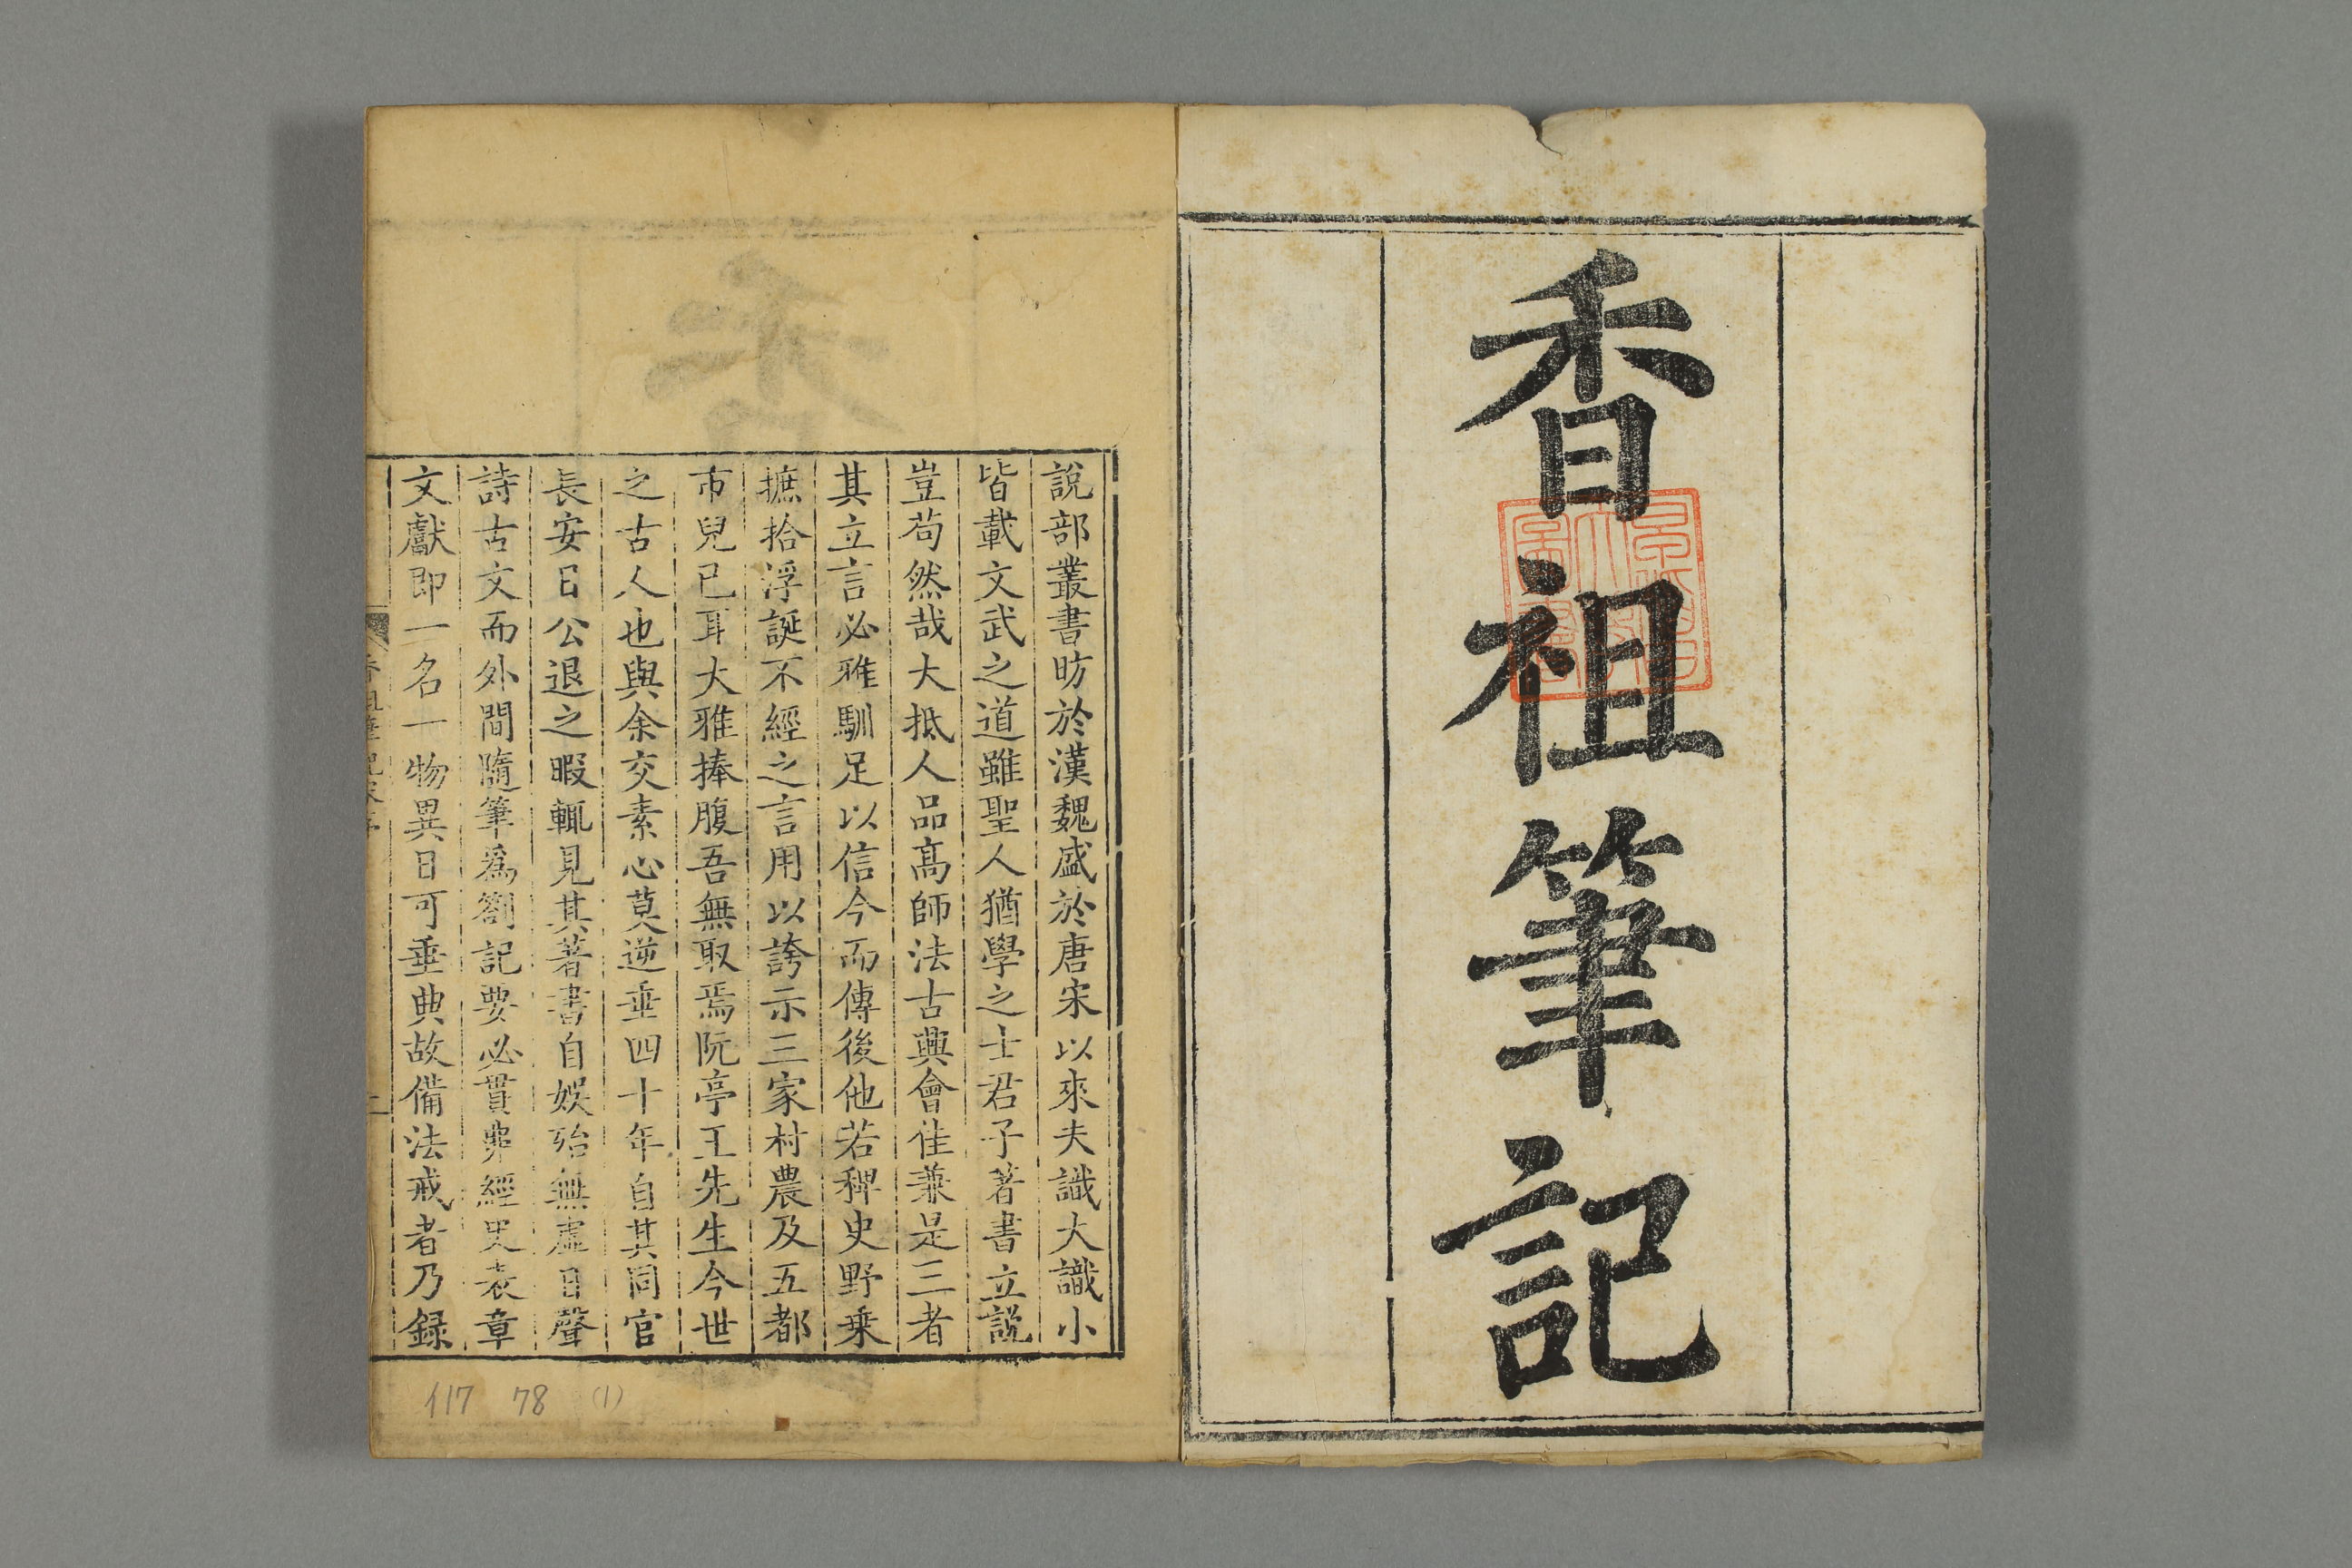 香祖筆記
說部叢書昉於漢魏盛於唐宋以來夫識大識小
皆載文武之道雖聖人猶學之士君子著書立說
豈苟然哉大抵人品高師法古興會佳兼是三者
其立言必雅馴足以信今而傳後他若稗史野乗
摭拾浮誕不經之言用以誇示三家村農及五都
市兒已耳大雅捧腹吾無取焉阮亭王先生今世
之古人也與余交素心莫逆垂四十年自其同官
長安日公退之暇輒見其著書自娛殆無虛日聲
詩古文而外間隨筆爲劄記要必貫弗經史表章
文獻即一名一物異日可垂典故備法戒者乃録
香祖筆記宋序
117 78 (1)